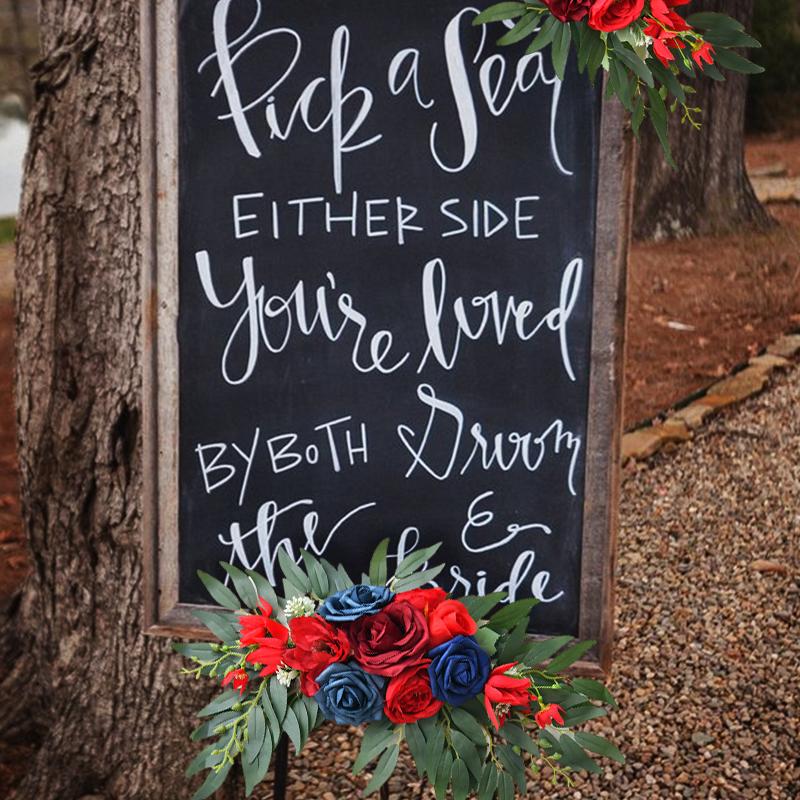 Pick a Seat
EITHER SIDE
You're loved
BY BOTH Groom
the & Bride